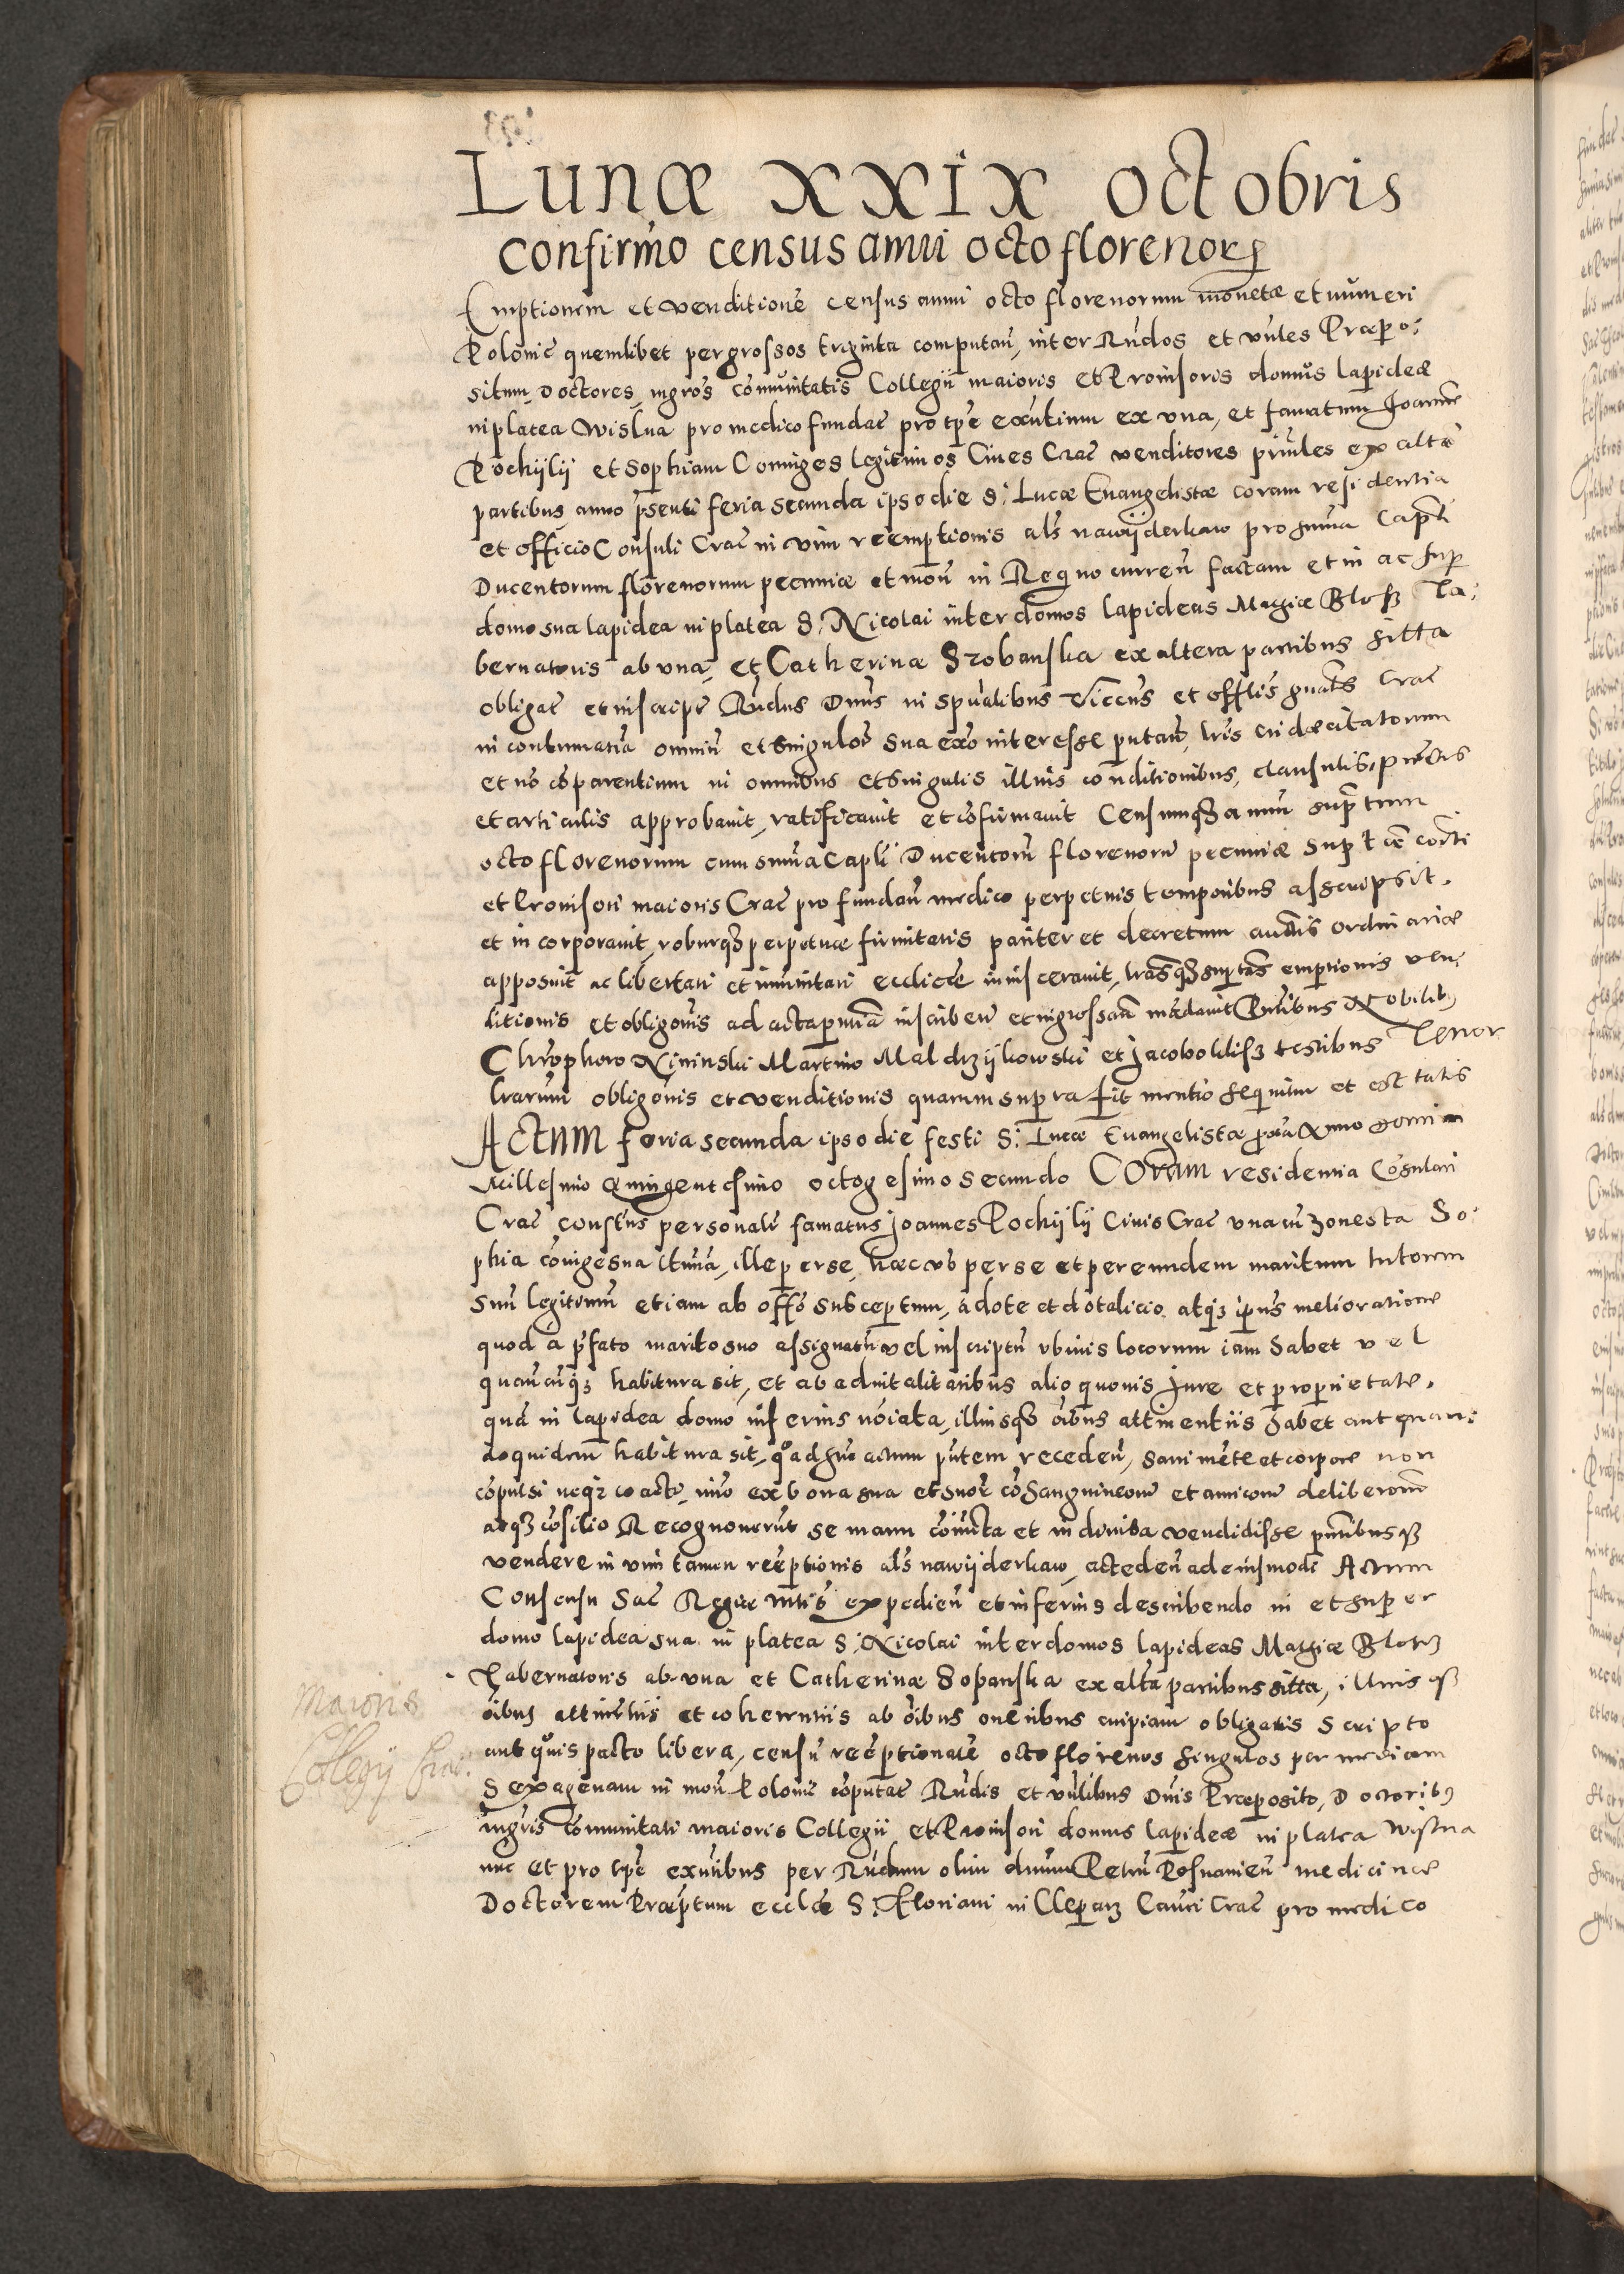 Lunæ XXIX octobris
Confirmo census annui octo florenorꝝ
Emptionem et venditione census annui octo florenorum monetæ et numeri
Polonic quemlibet per grossos triginta computan, inter Rndos et vnles Præpo:
situm, Doctores, mgros comunitatis Collegii maioris et Prouisoris domus lapideæ
in platea Wislna pro medico fundat pro tpe exntium ex vna, et famatum Joanne
Pochijlij et Sophiam Coniuges legitimos Ciues Crac venditores prinles ex alte
partibus anno pnsenti feria secunda ipso die S: Lucæ Euangelistæ coram residentia
et officio Consuli Crac in vim reemptionis als nawijderkaw pro suma Capli
Ducentorum florenorum pecuniæ et mon in Regno curren factam et in ac sup
domo sua lapidea in platea S: Nicolai inter domos lapideas Mathiæ Blosz Ta:
bernatoris ab vna, et Catherinæ Szobanska ex altera partibus sitta
obligat et inscript Rndus Dnus in spualibus Viccus et offlis gnalis Crac
in contumatia omniu et singulor sua exo interesse putan, lris eii d citatorum
et no coparentium in omnibus et singulis illius conditionibus, clausulis, punctis
et articulis approbauit, ratificauit et cofirmauit Censumqȝ annu supratum
octo florenorum cum suma Capli Ducentoru florenoru pecuniæ supt coiti
et Prouisori maioris Crac pro fundan medico perpetuis temporibus asscripsit,
et incorporauit, roburqȝ perpetuæ firmitatis pariter et decretum auctis ordinariæ
apposuit ac libertati et imunitati ecclicæ inuisceravit, lrasqȝ suptas emptionis ven
ditionis et obligonis ad acta pntia inscribere et ingrossari madauit Pntibus Nobilibȝ
Chrophoro Nininski Martino Maldrzijkowski et Jacobo testibus Tenor
lrarum obligonis et venditionis quarum supra fit mentio sequitur et est talis
Actum feria secunda ipso die festi S: Lucæ Euangelistæ Anno Domini
Millesimo Quingentesimo octogesimo secundo Coram residentia Cosulari
Crac constens personalr famatus Joannes Pochijlij Ciuis Crac vna cu honesta So:
phia coniuge sua ltima, ille per se, hæc vo per se et per eundem maritum tutorem
suu legitimu etiam ab offo susceptum, a dote et dotalicio atqȝ ipius melioratione
quod a pfato marito suo assignatu vel inscriptu vbiuis locorum iam habet vel
quancunqȝ habitura sit, et ab aduitalitatibus alio quouis Jure et proprietate,
qua in lapidea domo inferius noiata, illiusqȝ oibus attinentiis habet aut quan:
doquidem habitura sit, quo ad huc actum pntem receden, sani mente et corpore non
copulsi neqȝ coacti, imo ex bona sua et suor consanguineoru et amicoru deliberone
atqȝ cosilio Recognouerut se manu coiuncta et indiuisa vendidisse pntibusqȝ
vendere in vim tamen reeptionis als nawijderkaw, acceden ad eiusmodi Actum
Consensu Sac Regiæ mtis expedien et inferius describendo in et super
domo lapidea sua in platea S: Nicolai inter domos lapideas Mathiæ Blosz
Tabernatoris ab vna et Catherinæ Sopanska ex alta partibus sitta, illius qȝ
oibus attinetiis et coherentiis ab oibus oneribus cuipiam obligatis scripto
aut quouis pacto libera, censu reeptionale octo florenos singulos per mediam
Sexagenam in mon Polonic coputat Rndis et vnlibus Dnis Præposito, Doctoribȝ
mgris comunitati maioris Collegii et Prouisori domus lapideæ in platea Wislna
nuc et pro tpe exntibus per Rndum olim dnum Petru Posnanien medicinæ
Doctorem Præptum ecclæ S: Floriani in Cleparz Cauri Crac pro medico
Maioris
Collegij Crac.